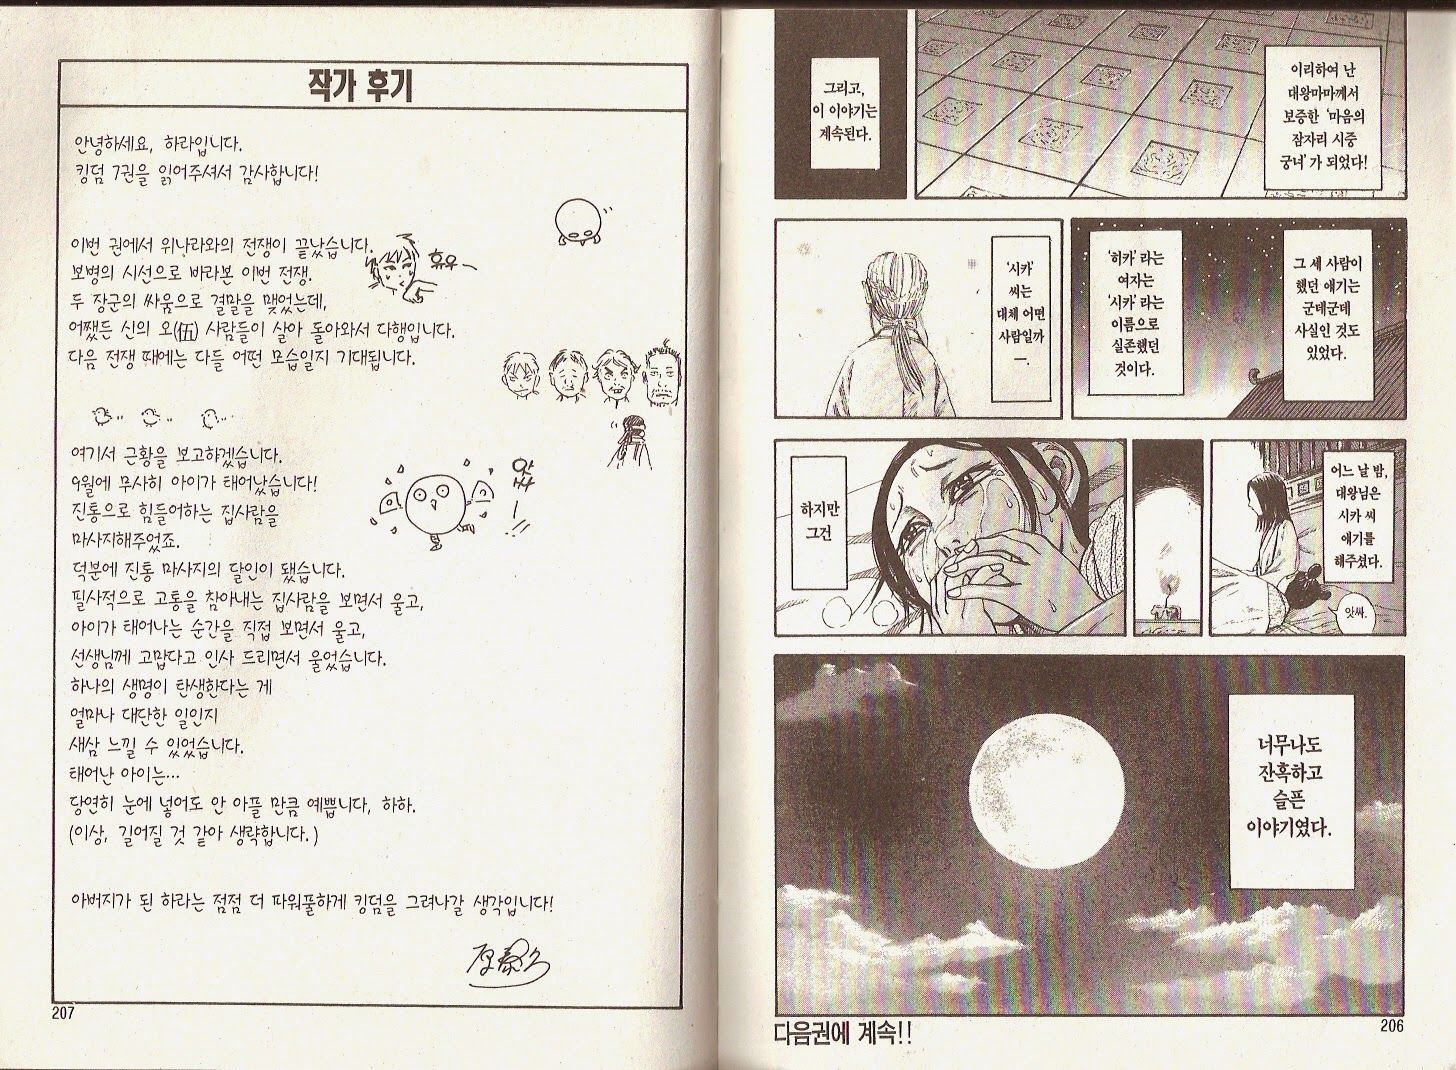 이리하여 난
대왕마마께서
보증한 '마음의
잠자리 시중
궁녀'가 되었다!
그리고,
이 이야기는
계속된다.
그 세 사람이
했던 얘기는
군데군데
사실인 것도
있었다.
'히카' 라는
여자는
'시카' 라는
이름으로
실존했던
것이다.
'시카'
씨는
대체 어떤
사람일까
―.
어느 날 밤,
대왕님은
시카 씨
얘기를
해주셨다.
앗싸.
하지만
그건
너무나도
잔혹하고
슬픈
이야기였다.
다음권에 계속!!
206
작가 후기
안녕하세요, 하라입니다.
킹덤 7권을 읽어주셔서 감사합니다!
이번 권에서 위나라와의 전쟁이 끝났습니다.
보병의 시선으로 바라본 이번 전쟁.
휴우~
두 장군의 싸움으로 결말을 맺었는데,
어쨌든 신의 오(伍) 사람들이 살아 돌아와서 다행입니다.
다음 전쟁 때에는 다들 어떤 모습일지 기대됩니다.
여기서 근황을 보고하겠습니다.
9월에 무사히 아이가 태어났습니다!
앗싸ー!!
진통으로 힘들어하는 집사람을
마사지해주었죠.
덕분에 진통 마사지의 달인이 됐습니다.
필사적으로 고통을 참아내는 집사람을 보면서 울고,
아이가 태어나는 순간을 직접 보면서 울고,
선생님께 고맙다고 인사 드리면서 울었습니다.
하나의 생명이 탄생한다는 게
얼마나 대단한 일인지
새삼 느낄 수 있었습니다.
태어난 아이는…
당연히 눈에 넣어도 안 아플 만큼 예쁩니다, 하하.
(이상, 길어질 것 같아 생략합니다.)
아버지가 된 하라는 점점 더 파워풀하게 킹덤을 그려나갈 생각입니다!
原泰久
207